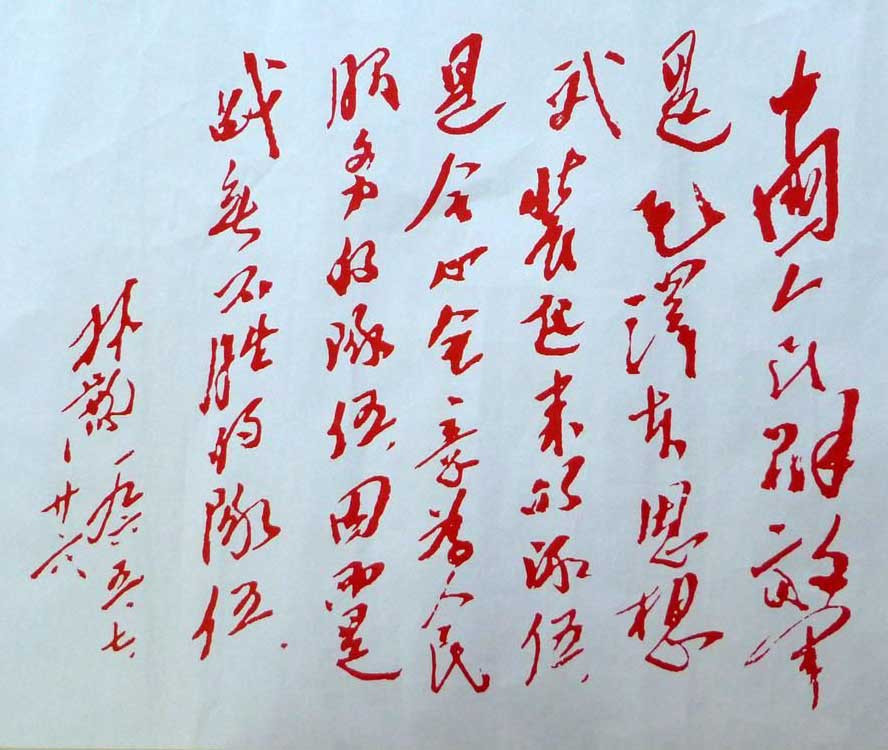 中國人民解放軍
是毛澤东思想
武裝起来的隊伍，
是全心全意为人民
服务的隊伍，因而是
战無不胜的隊伍．
林彪
一九六五．七．
廿六